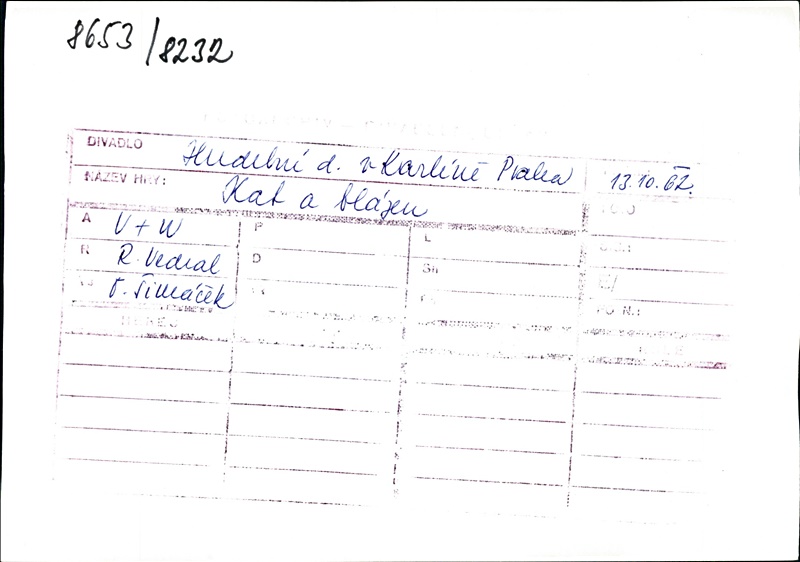 8653/8232
DIVADLO Hudební d. v Karlíně Praha 13.10.62.
NÁZEV HRY: Kat a blázen
A V + W P L
R R. Vedral D Sh
O. Šimáček
PO N.: